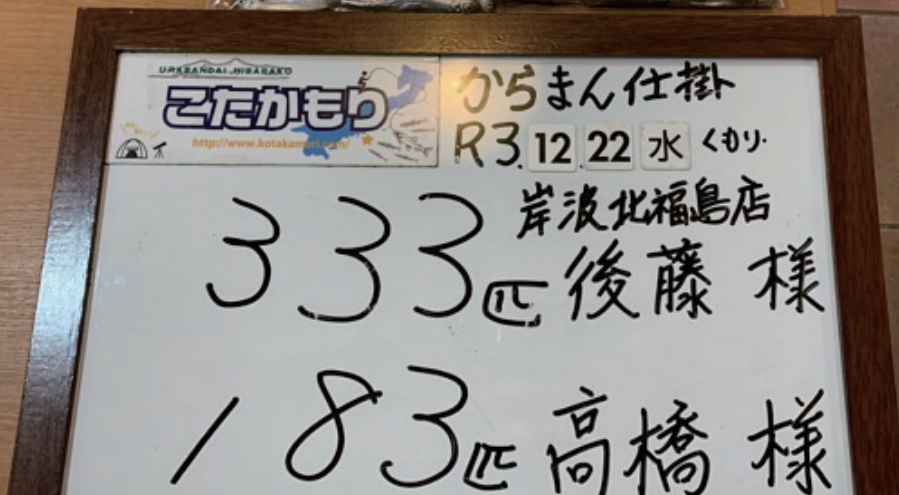 URABANDAI HIBARAKO
こたかもり
http://www.kotakamori.com/
からまん仕掛
R3.12.22 水 くもり.
岸波北福島店
333匹 後藤 様
183匹 高橋 様